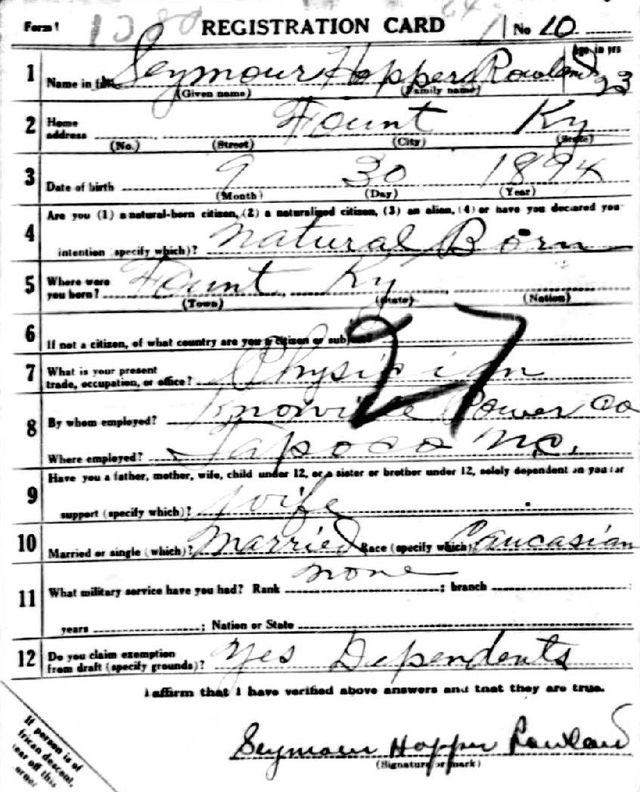 Form 1 REGISTRATION CARD No 10
Age in yrs
1 Name in full Seymour Hopper Rowland 23
(Given name) (Family name)
2 Home address Fount Ky
(No.) (Street) (City) (State)
3 Date of birth 9 30 1894
(Month) (Day) (Year)
Are you (1) a natural-born citizen, (2) a naturalized citizen, (3) an alien, (4) or have you declared your
4 intention (specify which)? Natural Born
5 Where were you born? Fount Ky
(Town) (State) (Nation)
6 If not a citizen, of what country are you a citizen or subject?
27
7 What is your present trade, occupation, or office? Physician
8 By whom employed? Knoxville Power Co
Where employed? Tapoco N.C.
Have you a father, mother, wife, child under 12, or a sister or brother under 12, solely dependent on you for
9 support (specify which)? wife
10 Married or single (which)? Married Race (specify which) Caucasian
11 What military service have you had? Rank none ; branch
years ; Nation or State
12 Do you claim exemption from draft (specify grounds)? Yes Dependents
I affirm that I have verified above answers and that they are true.
Seymour Hopper Rowland
(Signature or mark)
If person is of
African descent,
tear off this
corner